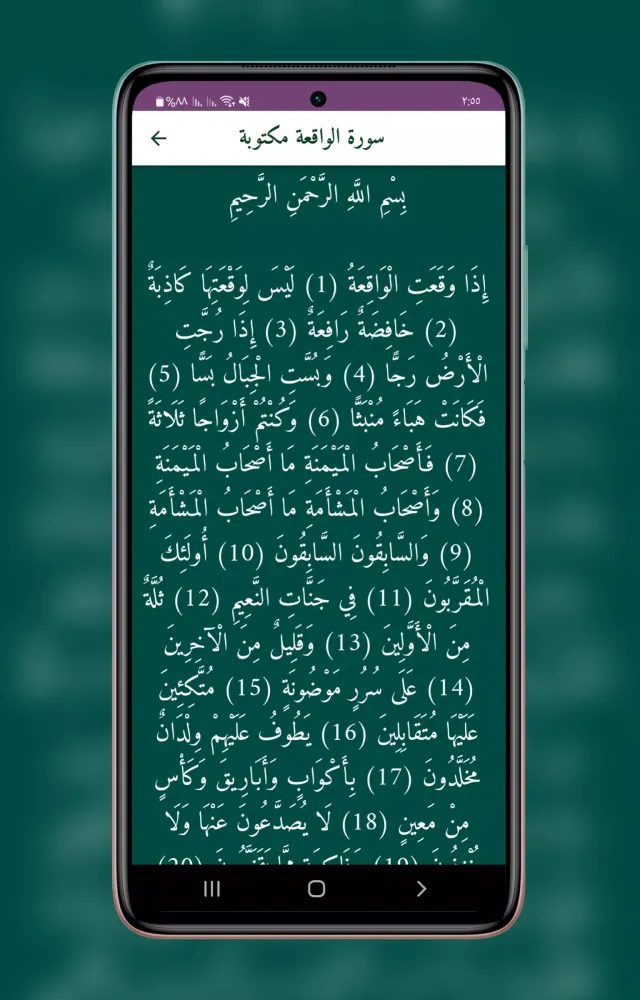 %٨٨ ٢:٥٥
سورة الواقعة مكتوبة
بِسْمِ اللَّهِ الرَّحْمَنِ الرَّحِيمِ
إِذَا وَقَعَتِ الْوَاقِعَةُ (1) لَيْسَ لِوَقْعَتِهَا كَاذِبَةٌ
(2) خَافِضَةٌ رَافِعَةٌ (3) إِذَا رُجَّتِ
الْأَرْضُ رَجًّا (4) وَبُسَّتِ الْجِبَالُ بَسًّا (5)
فَكَانَتْ هَبَاءً مُنْبَثًّا (6) وَكُنْتُمْ أَزْوَاجًا ثَلَاثَةً
(7) فَأَصْحَابُ الْمَيْمَنَةِ مَا أَصْحَابُ الْمَيْمَنَةِ
(8) وَأَصْحَابُ الْمَشْأَمَةِ مَا أَصْحَابُ الْمَشْأَمَةِ
(9) وَالسَّابِقُونَ السَّابِقُونَ (10) أُولَئِكَ
الْمُقَرَّبُونَ (11) فِي جَنَّاتِ النَّعِيمِ (12) ثُلَّةٌ
مِنَ الْأَوَّلِينَ (13) وَقَلِيلٌ مِنَ الْآخِرِينَ
(14) عَلَى سُرُرٍ مَوْضُونَةٍ (15) مُتَّكِئِينَ
عَلَيْهَا مُتَقَابِلِينَ (16) يَطُوفُ عَلَيْهِمْ وِلْدَانٌ
مُخَلَّدُونَ (17) بِأَكْوَابٍ وَأَبَارِيقَ وَكَأْسٍ
مِنْ مَعِينٍ (18) لَا يُصَدَّعُونَ عَنْهَا وَلَا